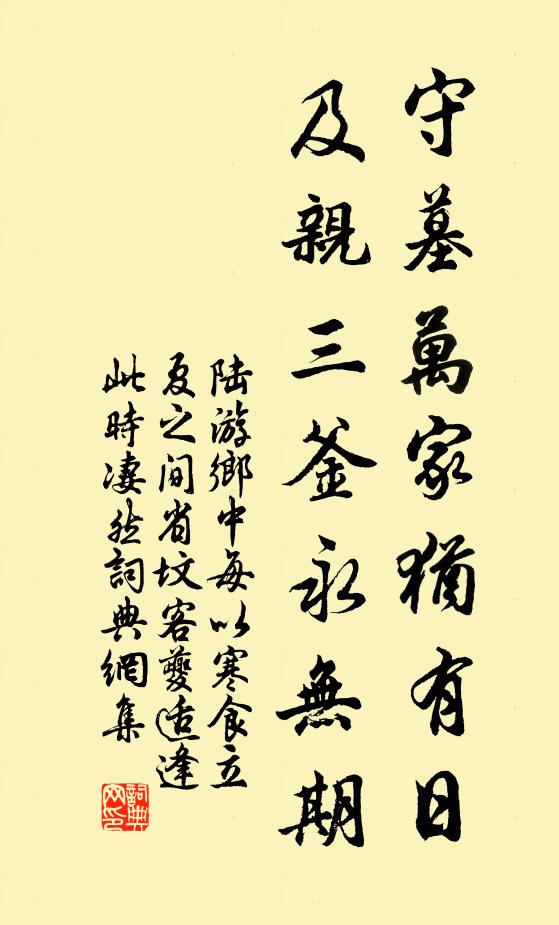 守墓萬家猶有日
及親三釜永無期
陆游鄉中每以寒食立
夏之间省坟客夔适逢
此時凄然詞典網集
詞典
网印